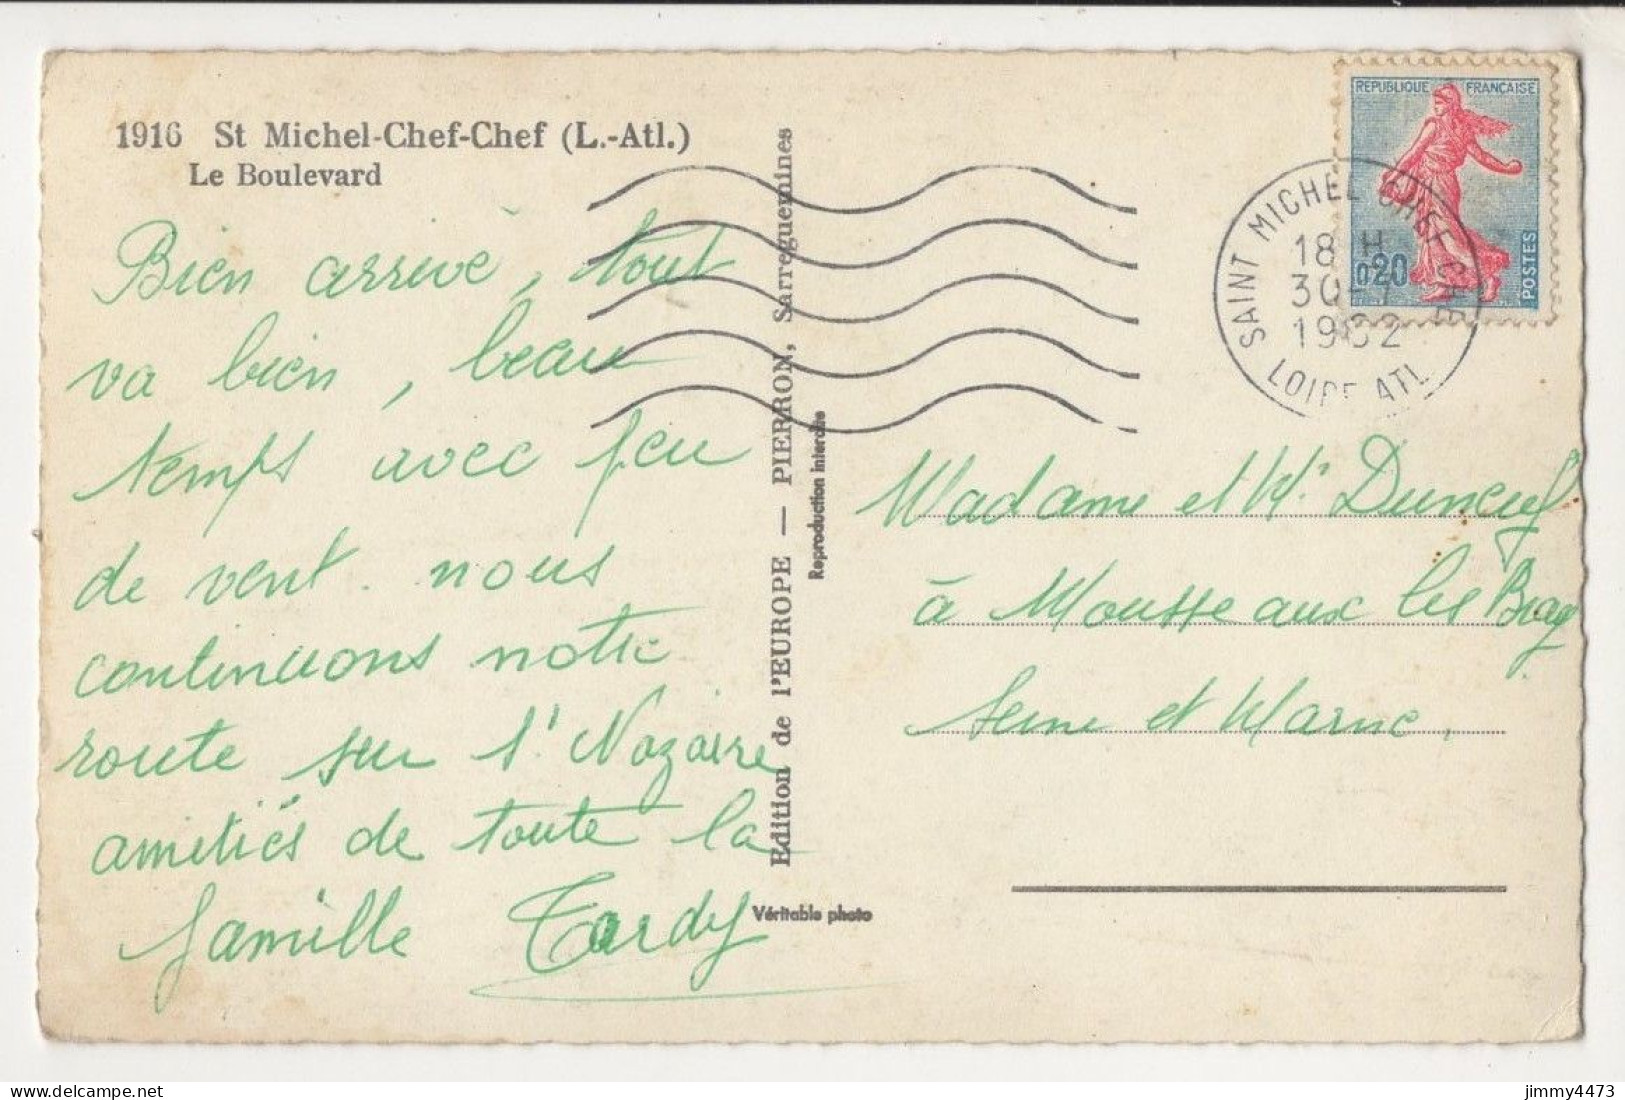 1916 St Michel-Chef-Chef (L.-Atl.)
Le Boulevard
Bien arrivé, tout
va bien, beau
temps avec peu
de vent. nous
continuons notre
route sur St Nazaire
amitiés de toute la
famille Tardy
Edition de l'EUROPE — PIERRON, Sarreguemines
Reproduction interdite
Véritable photo
REPUBLIQUE FRANÇAISE
0,20
POSTES
SAINT MICHEL CHEF CHEF
18 H
30
1962
LOIRE ATL
Madame et Mr Duneuf
à Mousseaux les Bray
Seine et Marne.
jimmy4473